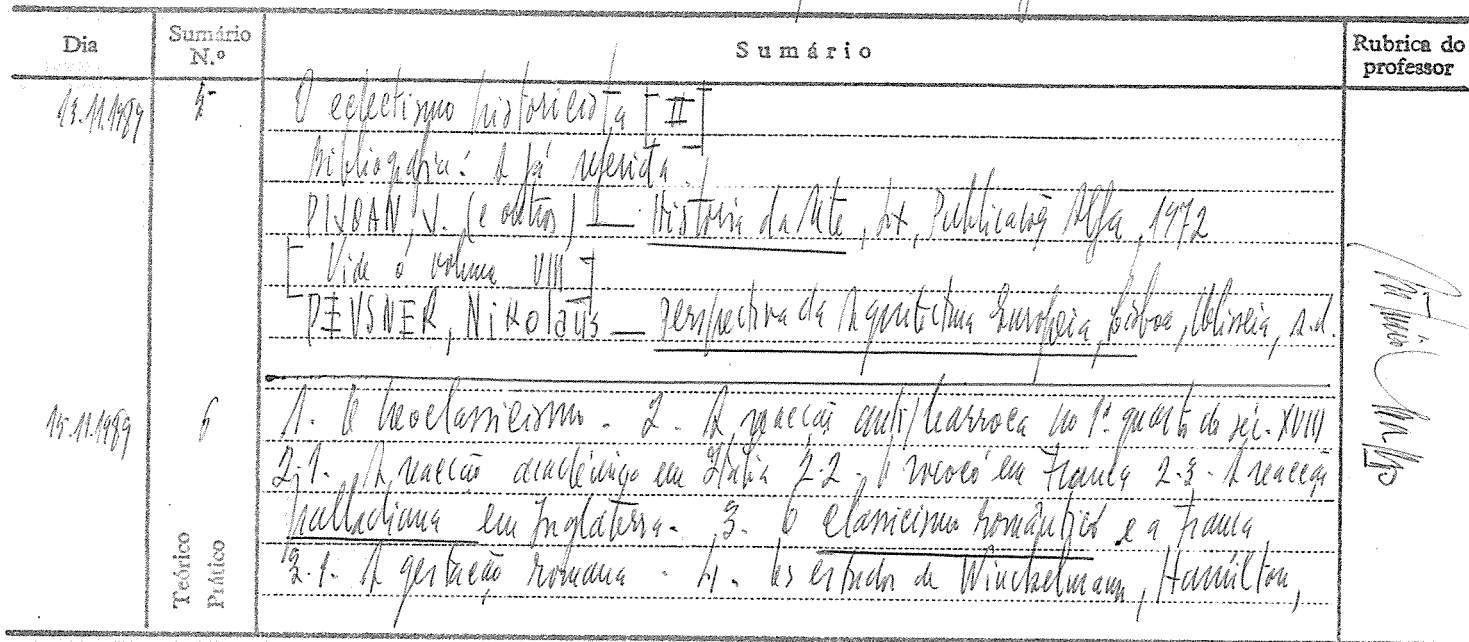 Dia Sumário N.º Sumário Rubrica do professor
13.11.1989 5 O eclectismo historicista [II]
Bibliografia: A já referida.
PIJOAN, J. (e outros) — História da Arte, Lx, Publicações Alfa, 1972
[Vide o volume VIII]
PEVSNER, Nikolaus — Perspectiva da Arquitectura Europeia, Lisboa, Ulisseia, s.d.
15.11.1989 6 1. O neoclassicismo. 2. A reacção anti/barroca no 1º quarto do séc. XVIII
2.1. A reacção académica em Itália 2.2. O rococó em França 2.3. A reacção
palladiana em Inglaterra. 3. O classicismo romântico e a França
3.1. A gestação romana. 4. Os estudos de Winckelmann, Hamilton,
Teórico
Prático